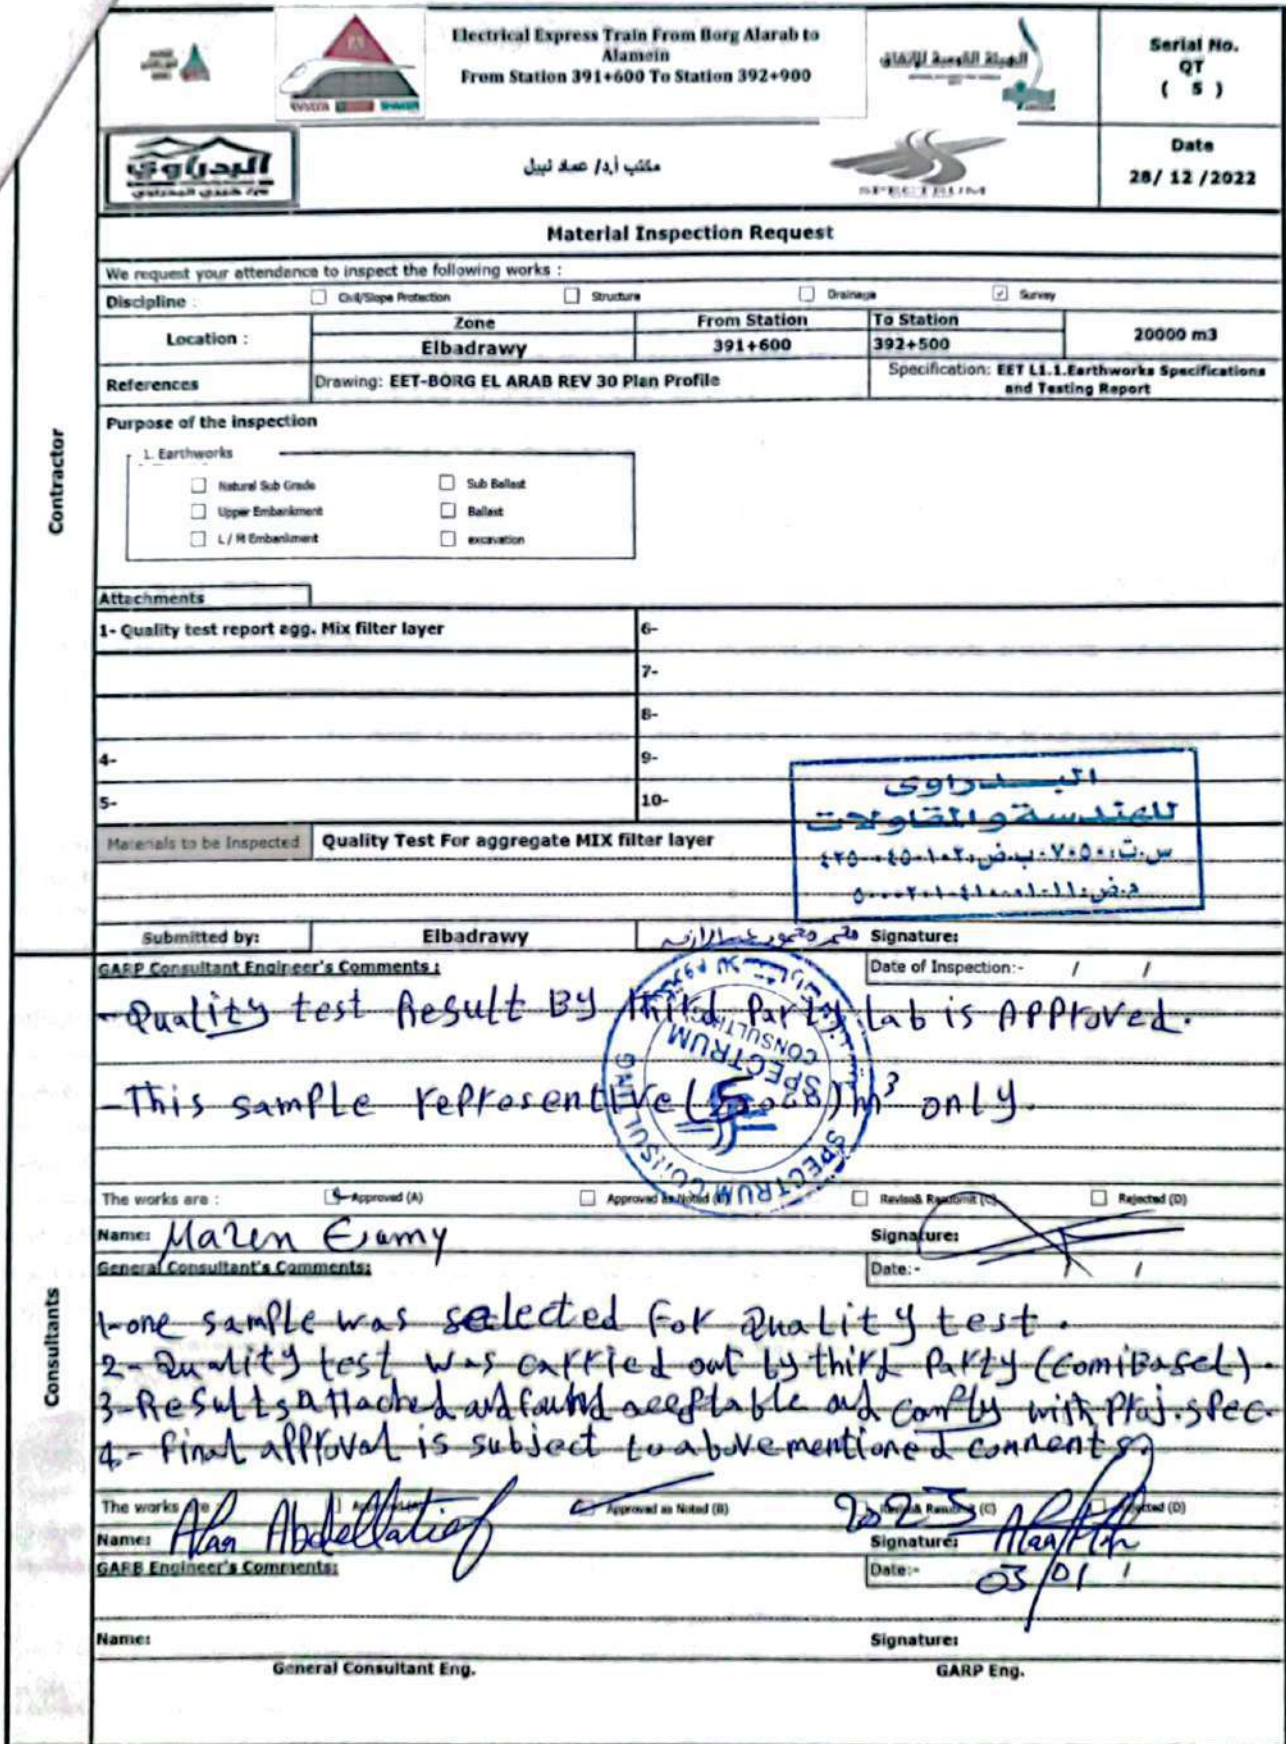 Electrical Express Train From Borg Alarab to
Alamein
From Station 391+600 To Station 392+900
الهيئة القومية للأنفاق
Serial No.
QT
( 5 )
البدراوي
مكتب أ.د/ عماد نبيل
SPECTRUM
Date
28/ 12 /2022
Material Inspection Request
We request your attendance to inspect the following works :
Discipline :
Civil/Slope Protection
Structure
Drainage
Survey
Location :
Zone
From Station
To Station
20000 m3
Elbadrawy
391+600
392+500
References
Drawing: EET-BORG EL ARAB REV 30 Plan Profile
Specification: EET L1.1.Earthworks Specifications
and Testing Report
Contractor
Purpose of the inspection
1. Earthworks
Natural Sub Grade
Sub Ballast
Upper Embankment
Ballast
L / M Embankment
excavation
Attachments
1- Quality test report agg. Mix filter layer
6-
7-
8-
4-
9-
5-
10-
البدراوى
للهندسة والمقاولات
Materials to be Inspected
Quality Test For aggregate MIX filter layer
Submitted by:
Elbadrawy
Signature:
GARP Consultant Engineer's Comments :
Date of Inspection:- / /
- Quality test Result By third Party Lab is APProved.
SPECTRUM
CONSULTING
- This sample representive (5000) m3 only.
SPECTRUM CONSULTING
The works are :
Approved (A)
Approved as Noted (B)
Revise& Resubmit (C)
Rejected (D)
Name: Mazen
Signature:
General Consultant's Comments:
Date:- / /
Consultants
1-one sample was selected for Quality test.
2- Quality test was carried out by third Party (ComiBasel).
3-Results attached and found acceptable and comply with Proj.spec.
4.- Final approval is subject to above mentioned comments.
The works are :
Approved (A)
Approved as Noted (B)
2023
Revise& Resubmit (C)
Rejected (D)
Name: Alaa Abdellatief
Signature:
GARB Engineer's Comments:
Date:- 03/01 /
Name:
Signature:
General Consultant Eng.
GARP Eng.